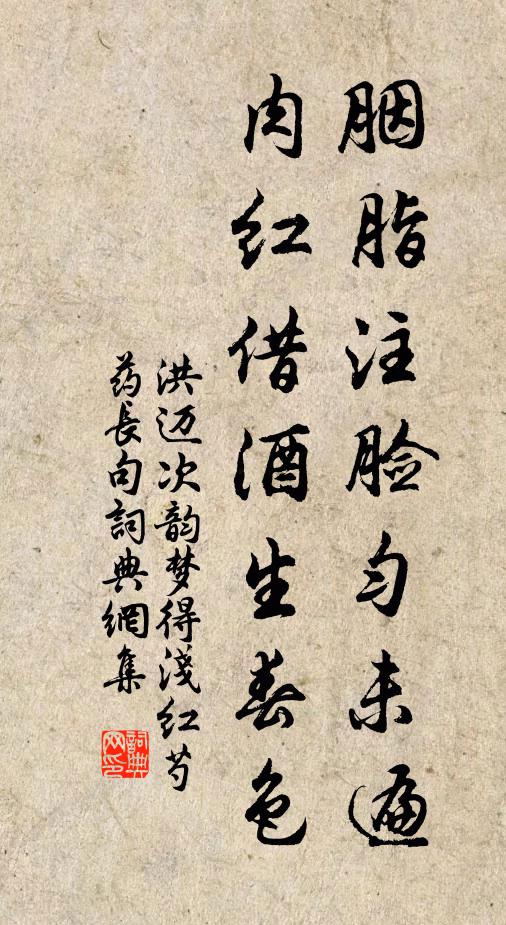 胭脂注脸匀未遍
肉红借酒生春色
洪迈次韵梦得浅红芍
药长句詞典網集
詞典
网印